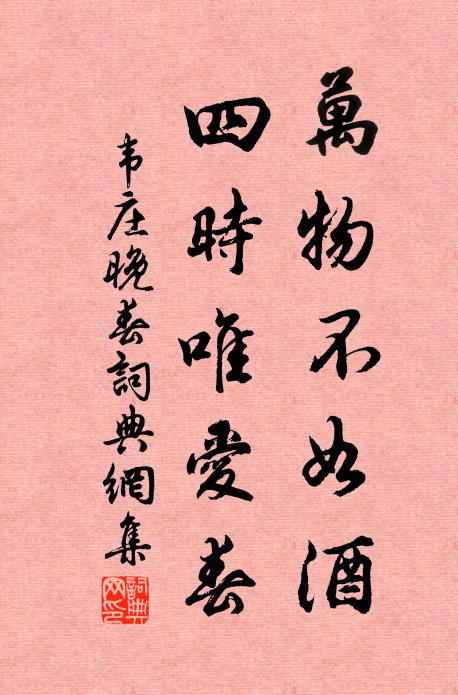 萬物不如酒
四時唯愛春
韦庄晚春詞典網集
詞典网印